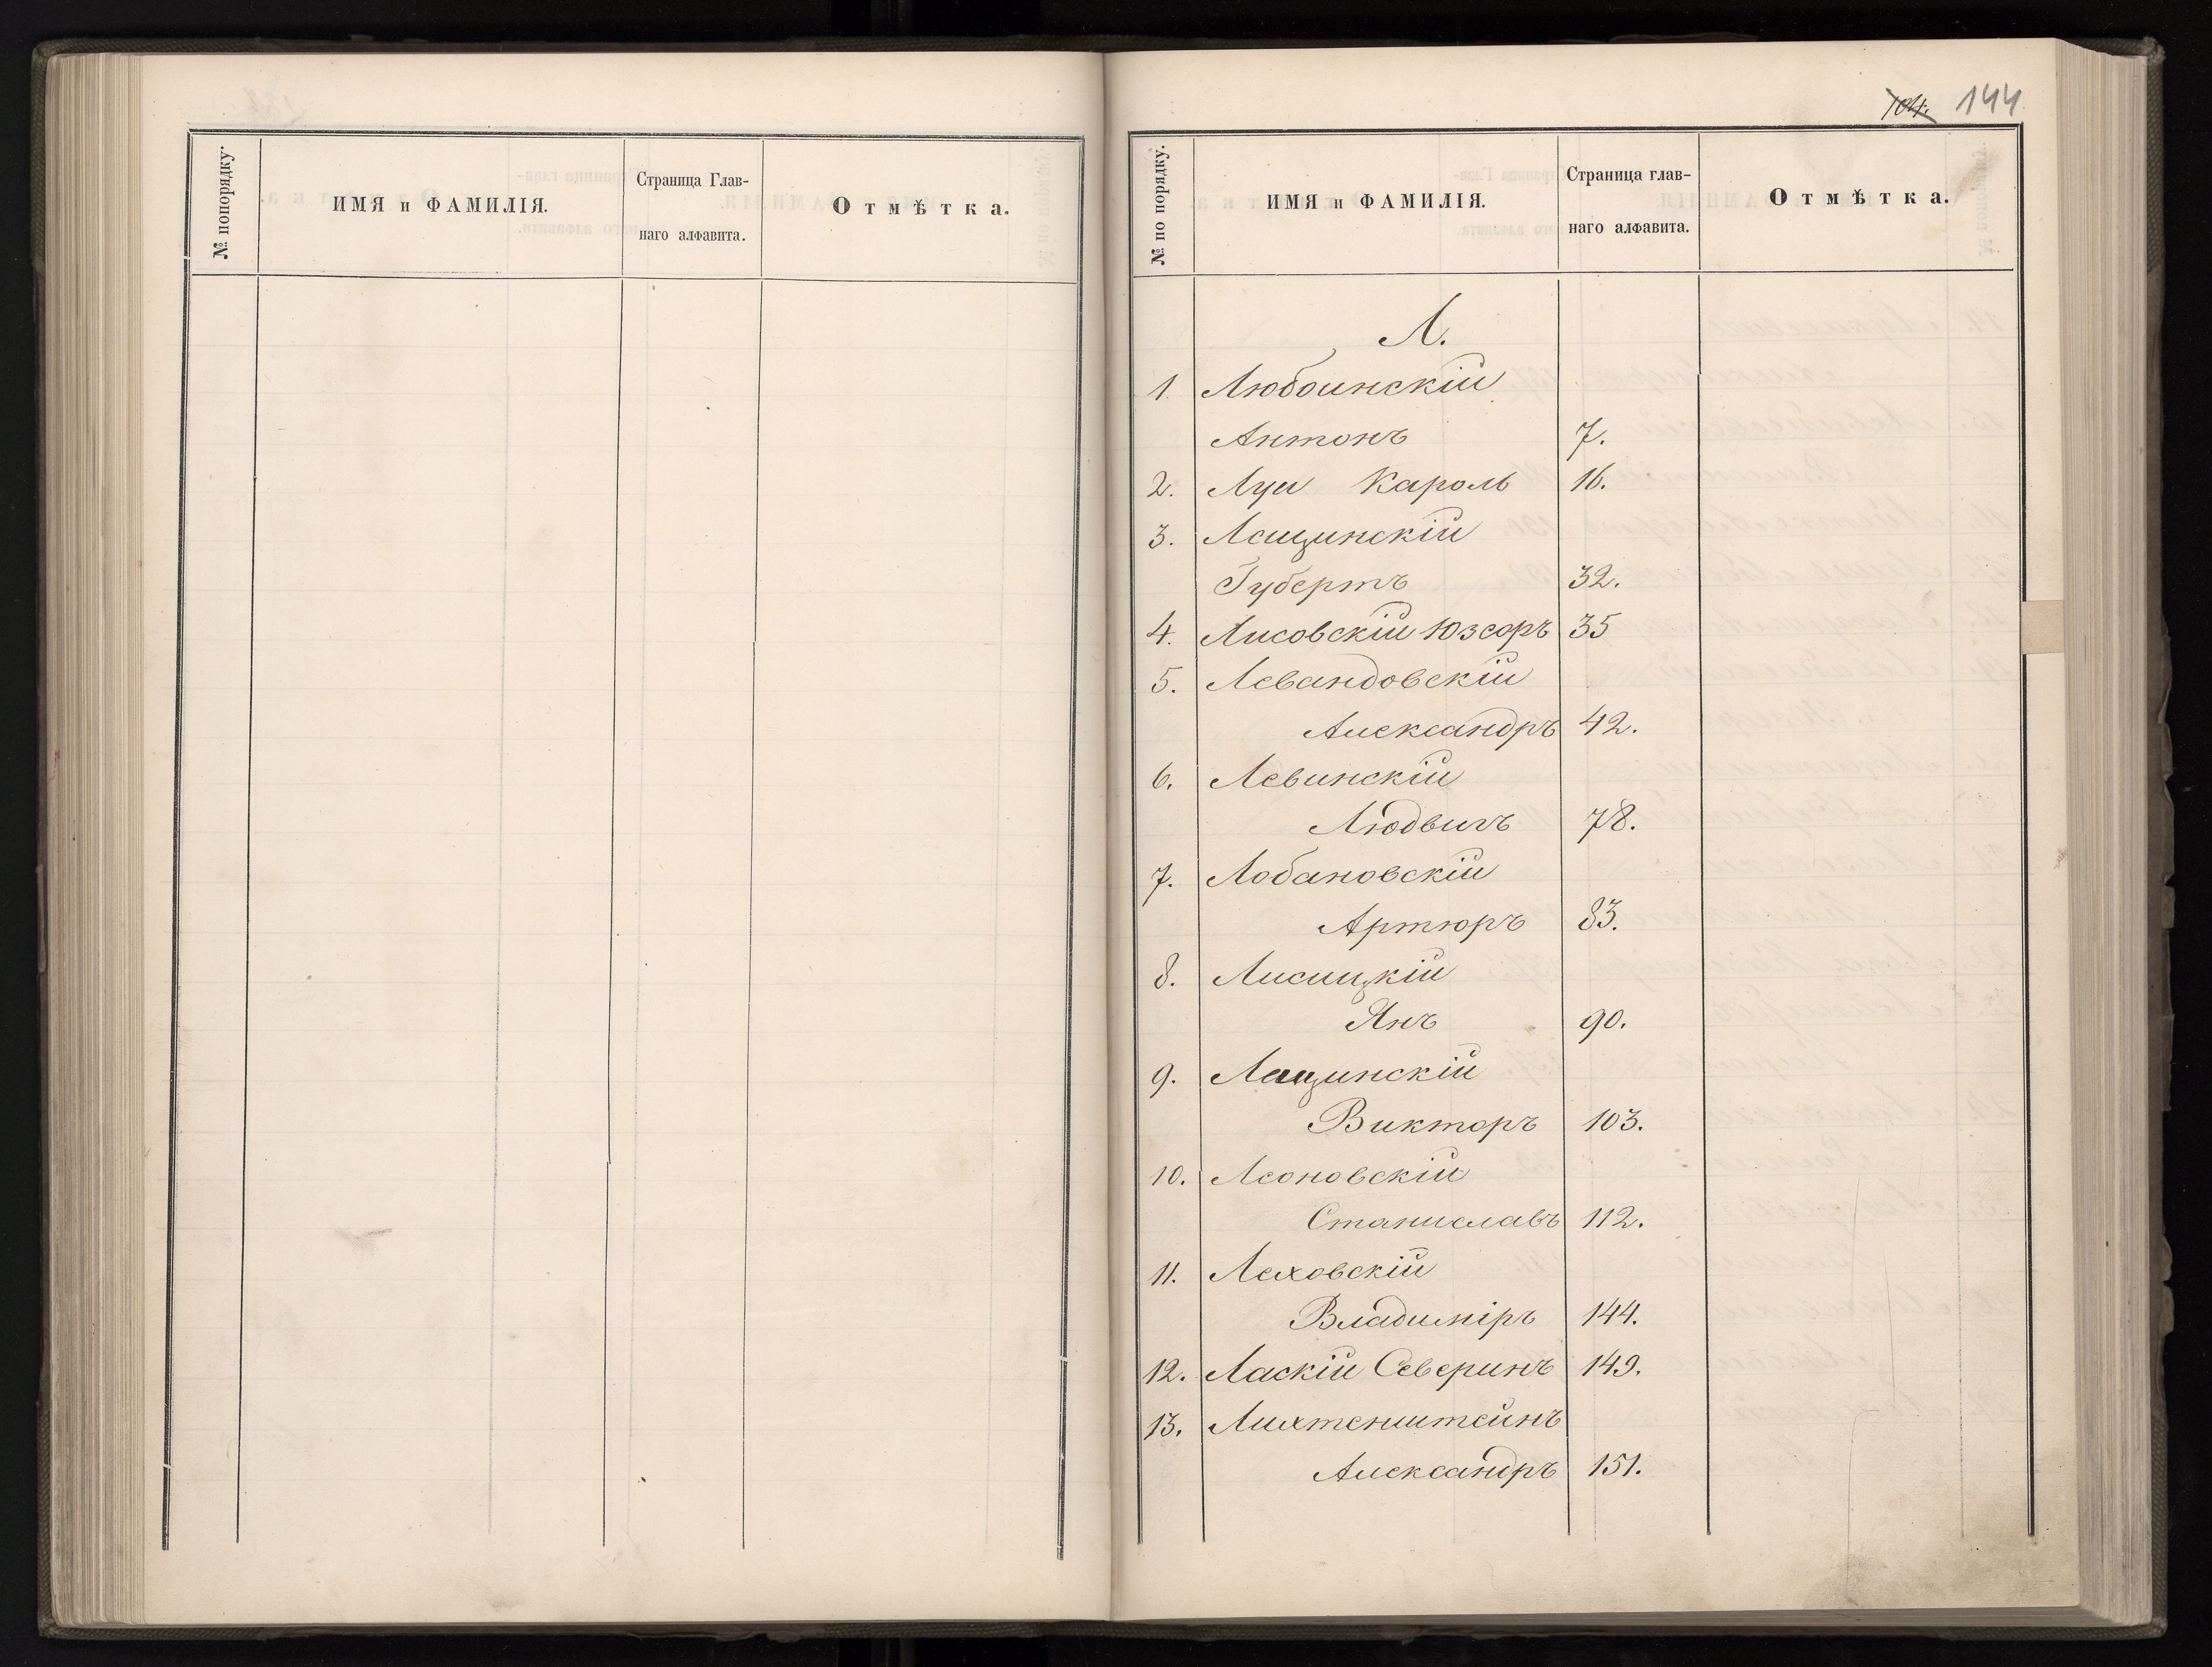 № попорядку.
ИМЯ и ФАМИЛІЯ.
Страница Глав-
наго алфавита.
Отмѣтка.
104. 144
№ по порядку.
ИМЯ и ФАМИЛІЯ.
Страница глав-
наго алфавита.
Отмѣтка.
Л.
1. Любоинскій
Антонъ 7.
2. Луи Кароль 16.
3. Лащинскій
Губертъ 32.
4. Лисовскій Юзефъ 35
5. Левандовскій
Александръ 42.
6. Левинскій
Людвигъ 78.
7. Лобановскій
Артюръ 83.
8. Лисицкій
Янъ 90.
9. Лащинскій
Викторъ 103.
10. Леоновскій
Станиславъ 112.
11. Леховскій
Владиміръ 144.
12. Ласкій Северинъ 149.
13. Лихтенштейнъ
Александръ 151.